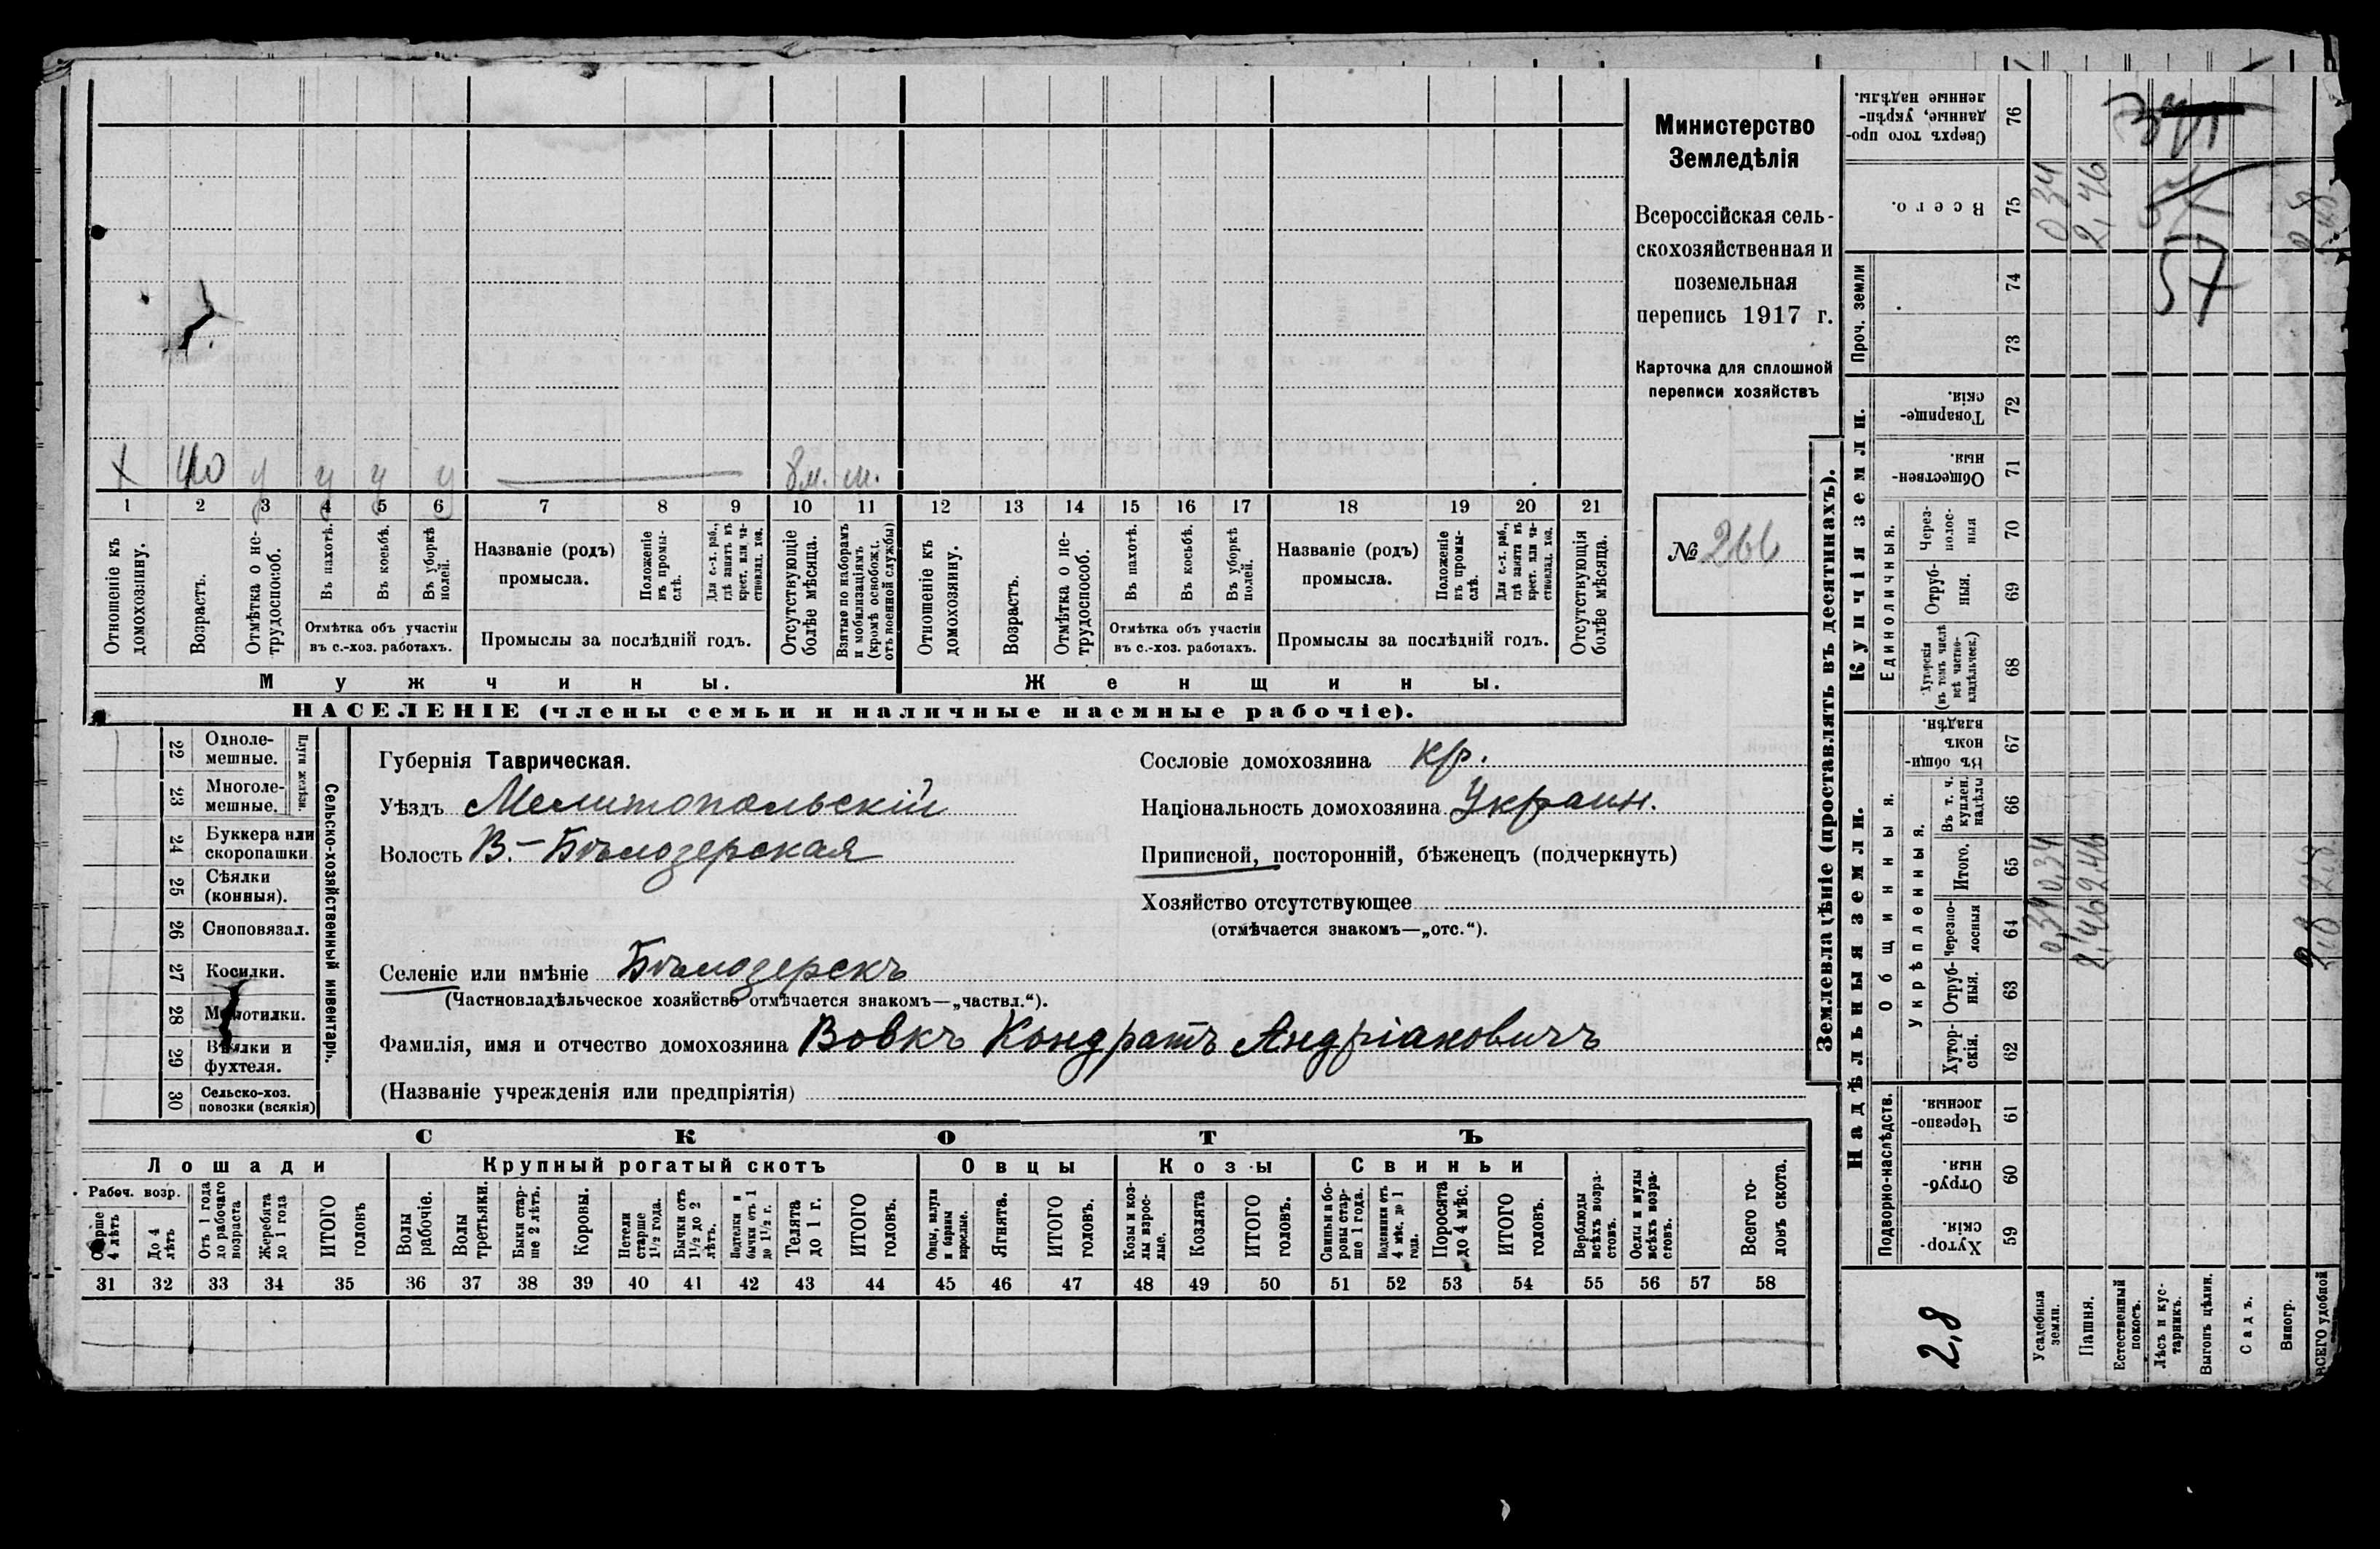 х 40 у у у у 8м. м.
1 2 3 4 5 6 7 8 9 10 11 12 13 14 15 16 17 18 19 20 21
Отношеніе къ домохозяину.
Возрастъ.
Отмѣтка о не-трудоспособ.
Въ пахотѣ.
Въ косьбѣ.
Въ уборкѣ полей.
Отмѣтка объ участіи
въ с.-хоз. работахъ.
Названіе (родъ)
промысла.
Положеніе въ промы-слѣ.
Для с.-х. раб., гдѣ занятъ въ крест. или ча-стновлад. хоз.
Промыслы за послѣдній годъ.
Отсутствующіе болѣе мѣсяца.
Взятые по наборамъ и мобилизаціямъ (кромѣ освобожд. отъ военной службы)
Отношеніе къ домохозяину.
Возрастъ.
Отмѣтка о не-трудоспособ.
Въ пахотѣ.
Въ косьбѣ.
Въ уборкѣ полей.
Отмѣтка объ участіи
въ с.-хоз. работахъ.
Названіе (родъ)
промысла.
Положеніе въ промы-слѣ.
Для с.-х. раб., гдѣ занята въ крест. или ча-стновлад. хоз.
Промыслы за послѣдній годъ.
Отсутствующія болѣе мѣсяца.
Мужчины. Женщины.
НАСЕЛЕНІЕ (члены семьи и наличные наемные рабочіе).
Министерство
Земледѣлія
Всероссійская сель-
скохозяйственная и
поземельная
перепись 1917 г.
Карточка для сплошной
переписи хозяйствъ
№ 266
Сельско-хозяйственный инвентарь.
Плуги желѣзн.
22 Одноле-
мешные.
23 Многоле-
мешные.
24 Буккера или
скоропашки
25 Сѣялки
(конныя).
26 Сноповязал.
27 Косилки.
28 Молотилки.
29 Вѣялки и
фухтеля.
30 Сельско-хоз.
повозки (всякія)
Губернія Таврическая.
Уѣздъ Мелитопольскій
Волость В.-Бѣлозерская
Селеніе или имѣніе Бѣлозерскъ
(Частновладѣльческое хозяйство отмѣчается знакомъ—„частвл.“).
Фамилія, имя и отчество домохозяина Вовкъ Кондратъ Андріановичъ
(Названіе учрежденія или предпріятія)
Сословіе домохозяина кр.
Національность домохозяина Украин.
Приписной, посторонній, бѣженецъ (подчеркнуть)
Хозяйство отсутствующее
(отмѣчается знакомъ—„отс.“).
СКОТЪ
Лошади Крупный рогатый скотъ Овцы Козы Свиньи
Рабоч. возр.
Старше 4 лѣтъ
До 4 лѣтъ
Отъ 1 года до рабочаго возраста
Жеребята до 1 года
ИТОГО головъ
Волы рабочіе.
Волы третьяки.
Быки стар-ше 2 лѣтъ.
Коровы.
Нетели старше 1½ года.
Бычки отъ 1½ до 2 лѣтъ.
Подтелки и бычки отъ 1 до 1½ г.
Телята до 1 г.
ИТОГО головъ.
Овцы, валухи и бараны взрослые.
Ягнята.
ИТОГО головъ.
Козы и коз-лы взрос-лые.
Козлята
ИТОГО головъ.
Свиньи и бо-ровы стар-ше 1 года.
Подсвинки отъ 4 мѣс. до 1 года.
Поросята до 4 мѣс.
ИТОГО головъ.
Верблюды всѣхъ возра-стовъ.
Ослы и мулы всѣхъ возра-стовъ.
Всего го-ловъ скота.
31 32 33 34 35 36 37 38 39 40 41 42 43 44 45 46 47 48 49 50 51 52 53 54 55 56 57 58
Землевладѣніе (проставлять въ десятинахъ).
Надѣльныя земли. Купчія земли. Проч. земли
Подворно-наслѣдств.
Общинныя.
Укрѣпленныя.
Единоличныя.
59 Хутор-скія.
60 Отруб-ныя.
61 Черезпо-лосныя.
62 Хутор-скія.
63 Отруб-ныя.
64 Черезпо-лосныя
65 Итого.
66 Въ т. ч. куплен. надѣлы
67 Въ общин-номъ владѣн.
68 Хуторскія (въ томъ числѣ всѣ частно-владѣльческ.)
69 Отруб-ныя.
70 Через-полос-ныя
71 Обществен-ныя.
72 Товарище-скія.
73
74
75 Всего.
76 Сверхъ того про-данные, укрѣп-ленные надѣлы.
2,8
Усадебныя земли. 0,34 0,34 0 34
Пашня. 2,46 2,46 2,46
Естественный покосъ.
Лѣсъ и кус-тарникъ.
Выгонъ цѣлин.
Садъ.
Виногр.
ВСЕГО удобной 2,8 2,8
57